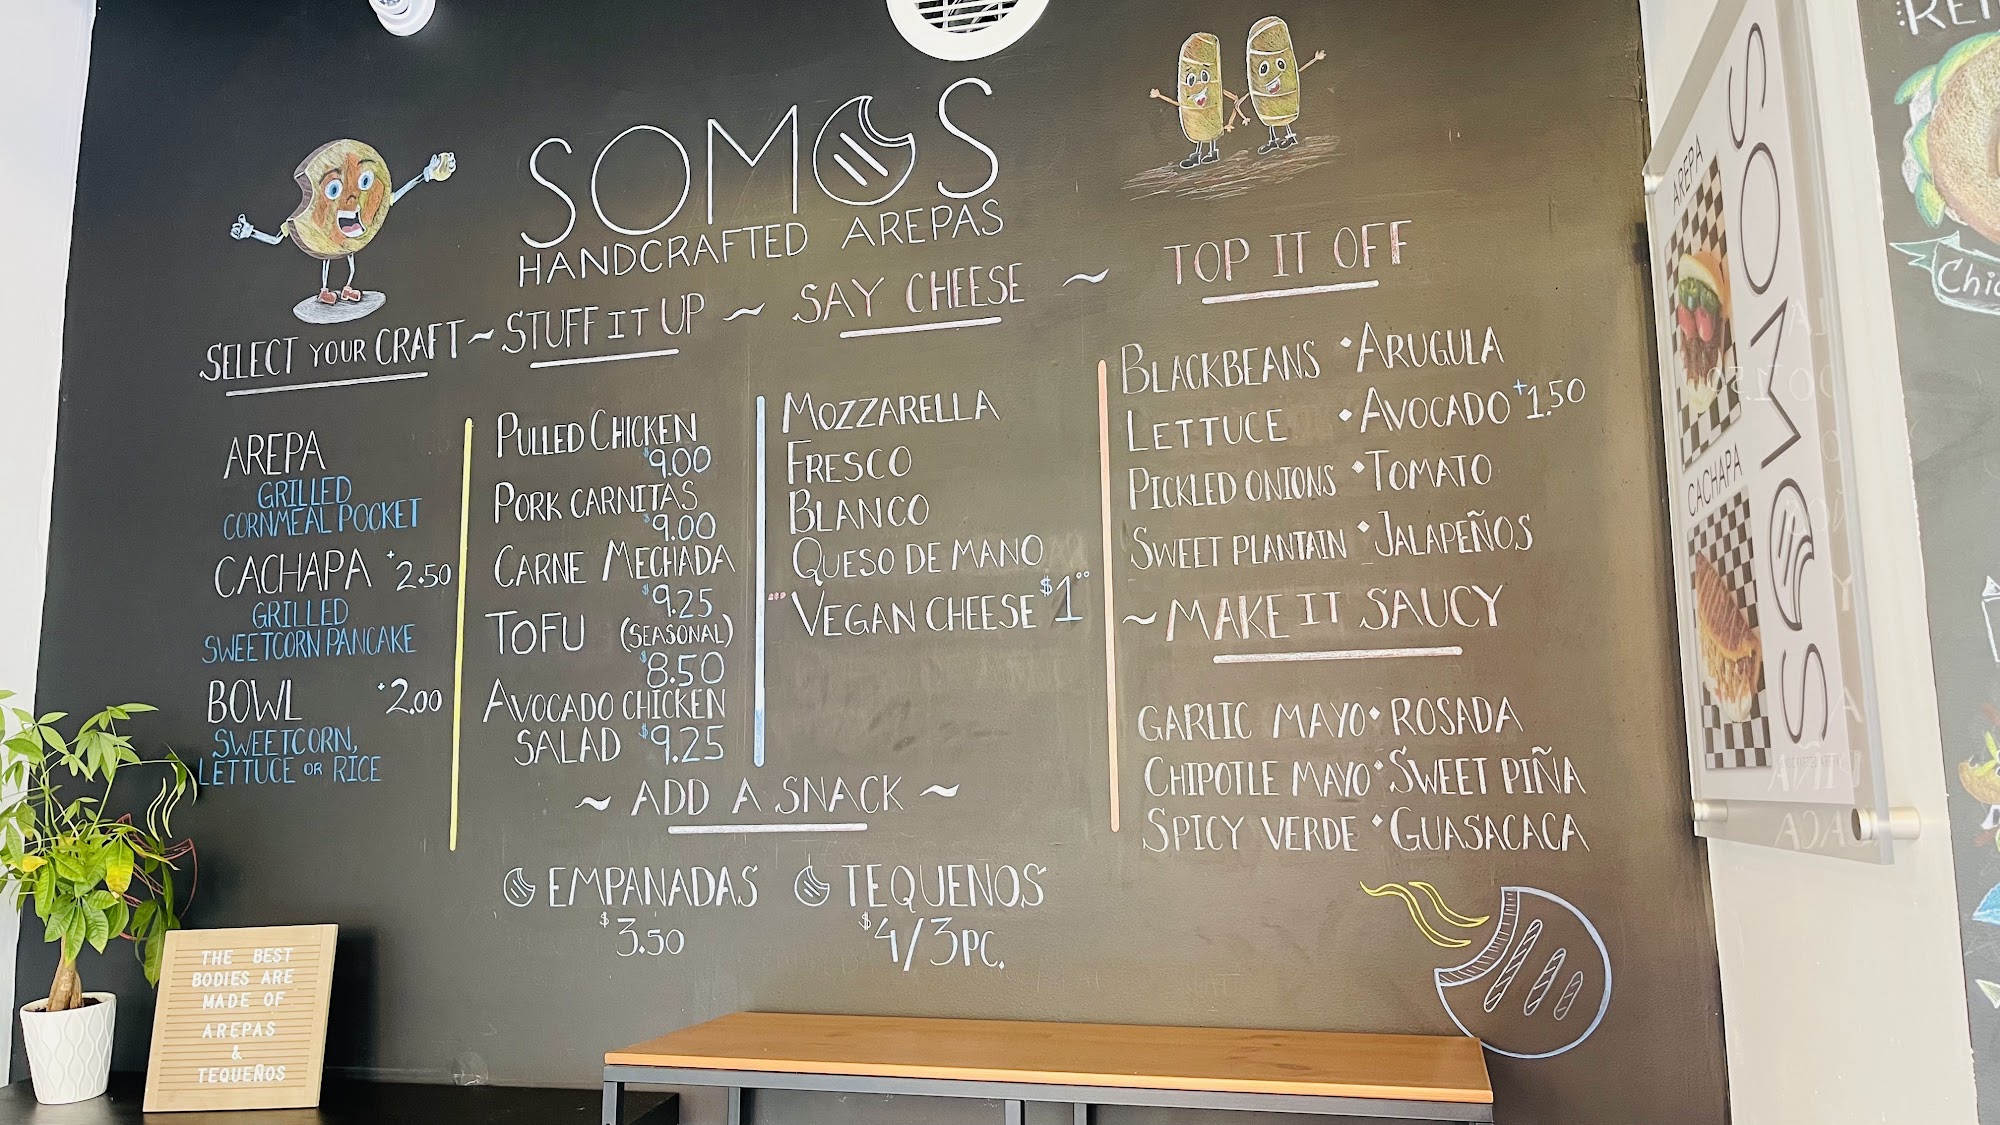 SOMOS
HANDCRAFTED AREPAS
SELECT YOUR CRAFT ~ STUFF IT UP ~ SAY CHEESE ~ TOP IT OFF
AREPA
GRILLED
CORNMEAL POCKET
CACHAPA +2.50
GRILLED
SWEETCORN PANCAKE
BOWL +2.00
SWEETCORN,
LETTUCE OR RICE
PULLED CHICKEN
$9.00
PORK CARNITAS
$9.00
CARNE MECHADA
$9.25
TOFU (SEASONAL)
$8.50
AVOCADO CHICKEN
SALAD $9.25
MOZZARELLA
FRESCO
BLANCO
QUESO DE MANO
VEGAN CHEESE $1°°
BLACKBEANS • ARUGULA
LETTUCE • AVOCADO +1.50
PICKLED ONIONS • TOMATO
SWEET PLANTAIN • JALAPEÑOS
~ MAKE IT SAUCY
GARLIC MAYO • ROSADA
CHIPOTLE MAYO • SWEET PIÑA
SPICY VERDE • GUASACACA
~ ADD A SNACK ~
EMPANADAS
$3.50
TEQUENOS
$4/3PC.
THE BEST
BODIES ARE
MADE OF
AREPAS
&
TEQUEÑOS
AREPA
CACHAPA
SOMOS
HANDCRAFTED AREPAS